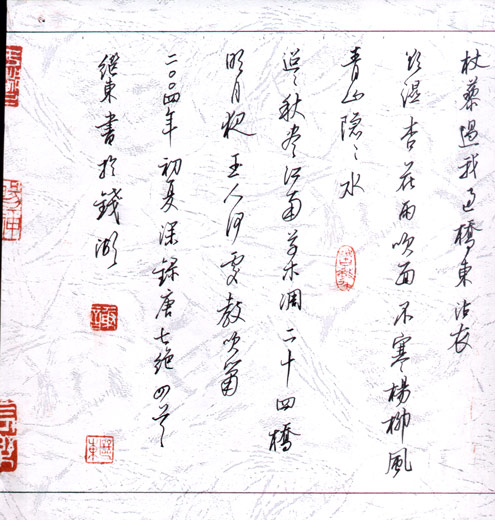 杖藜過我過橋東沾衣
欲濕杏花雨吹面不寒楊柳風
青山隐々水
迢々秋尽江南草木凋二十四橋
明月夜玉人何處教吹簫
二〇〇四年初夏深録唐七絶四首
继東書於錢湖